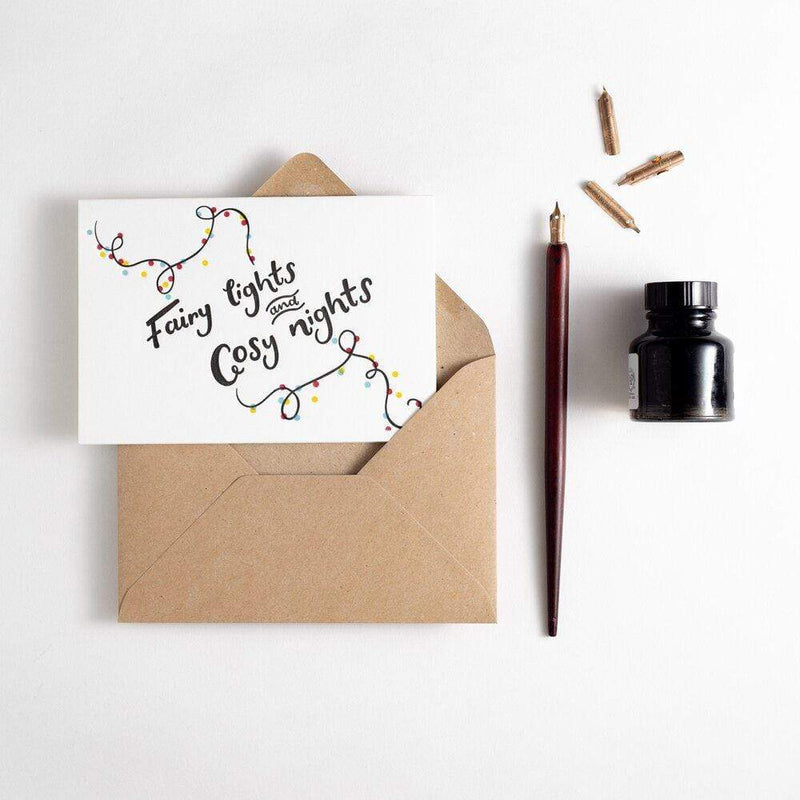 Fairy lights
and
Cosy nights